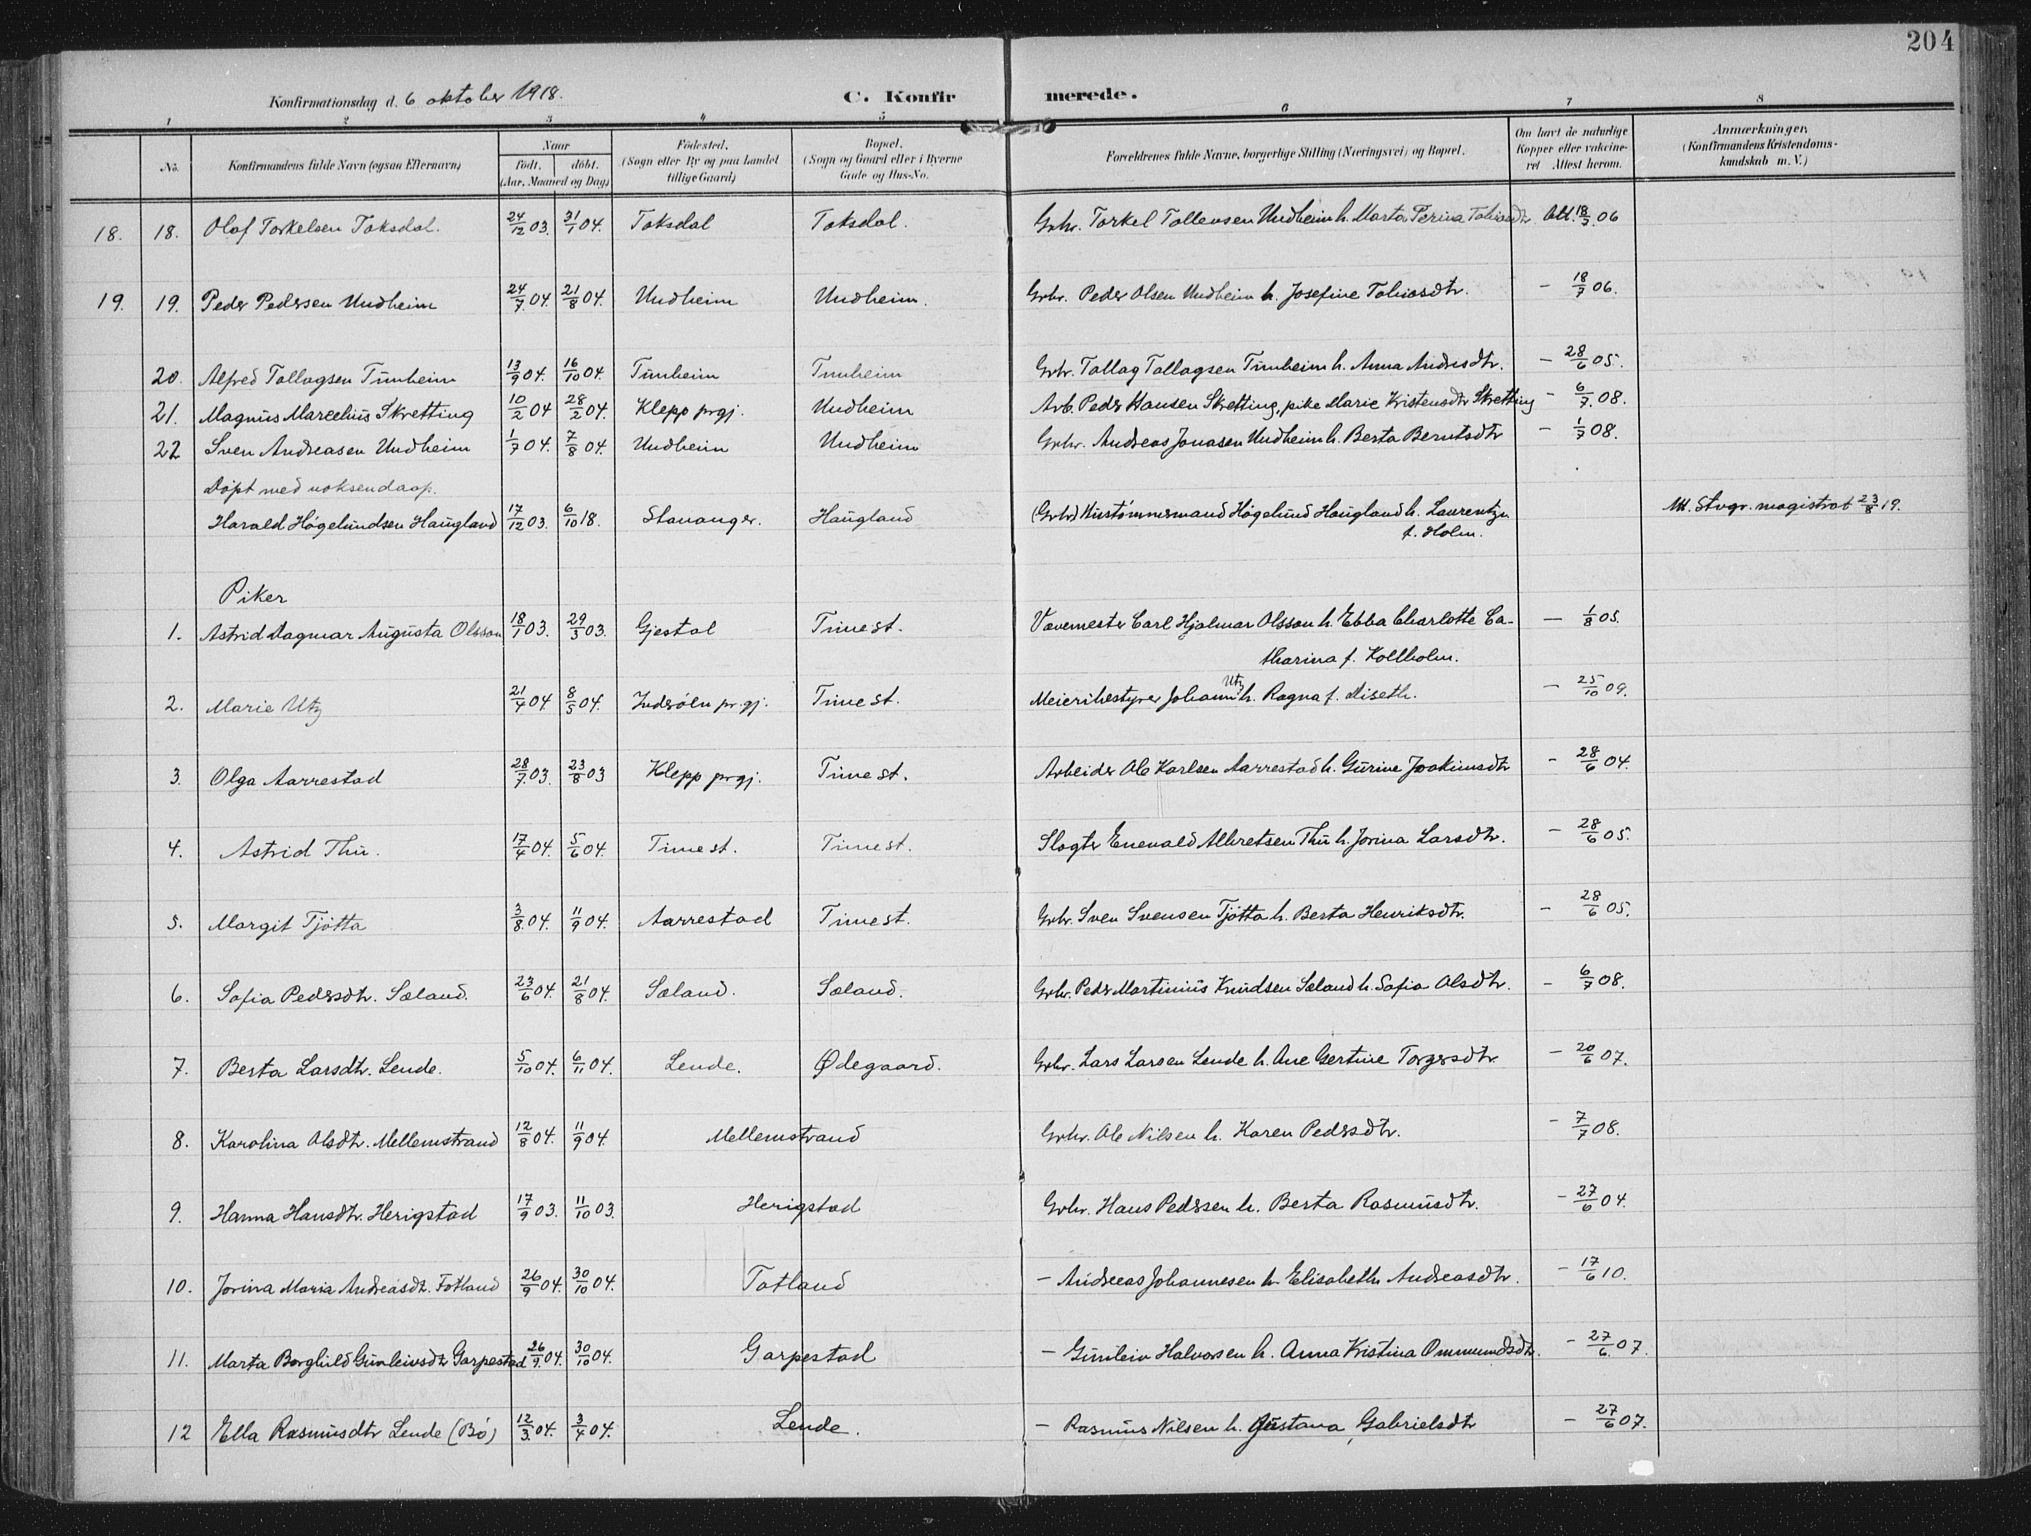 204
Konfirmationsdag d. 6 oktober 1918.
C. Konfirmerede.
1 2 3 4 5 6 7 8
No.
Konfirmandens fulde Navn (ogsaa Efternavn)
Naar
født, døbt.
(Aar, Maaned og Dag)
Födested.
(Sogn eller By og paa Landet tillige Gaard)
Bopæl.
(Sogn og Gaard eller i Byerne Gade og Hus-No.
Forældrenes fulde Navne, borgerlige Stilling (Næringsvei) og Bopæl.
Om havt de naturlige Kopper eller vakcineret Attest herom.
Anmærkninger.
(Konfirmandens Kristendomskundskab m. V.)
18. 18. Olaf Torkelsen Taksdal. 24/12 03. 31/1 04. Taksdal Taksdal. Grbr. Torkel Tollevsen Undheim h. Marta Perina Tobiasdtr. Att. 18/7 06
19. 19. Peder Pedersen Undheim 24/7 04. 21/8 04. Undheim Undheim. Grbr. Peder Olsen Undheim h. Josefine Tobiasdtr. — 18/7 06.
20. Alfred Tollagsen Tunheim 13/9 04. 16/10 04. Tunheim Tunheim Grbr. Tollag Tollagsen Tunheim h. Anna Andersdtr. — 28/6 05.
21. Magnus Marcelius Skretting 10/2 04 28/2 04. Klepp prgj. Undheim Arb. Peder Hansen Skretting, pike Marie Kristensdtr Skretting — 6/7 08.
22 Sven Andreasen Undheim 1/7 04. 7/8 04. Undheim Undheim Grbr. Andreas Jonasen Undheim h. Berta Berntsdtr — 1/7 08.
Døpt med voksendaap.
Harald Høgelundsen Haugland 17/12 03. 6/10 18. Stavanger. Haugland (Grbr) Hustømmermand Høgelund Haugland h. Laurentze Att. Stvgr. magistrat 23/8 19.
f. Holm.
Piker
1. Astrid Dagmar Augusta Olsson 18/1 03. 29/3 03. Gjestal Time st. Vævemester Carl Hjalmar Olsson h. Ebba Charlotte Ca- — 1/8 05.
tharina f. Kollholm.
2. Marie Utz 21/4 04 8/5 04. Inderøen pr.gj. Time st. Meieribestyrer Johann Utz h. Ragna f. Aiseth. — 25/10 09.
3. Olga Aarrestad 28/7 03. 23/8 03 Klepp prgj. Time st. Arbeider Ole Karlsen Aarrestad h. Gurine Joakimsdtr — 28/6 04.
4. Astrid Thu. 17/4 04. 5/6 04. Time st. Time st. Slagter Enevald Albretsen Thu h. Jorina Larsdtr. — 28/6 05.
5. Margit Tjøtta 3/8 04. 11/9 04. Aarrestad Time st. Grbr. Sven Svensen Tjøtta h. Berta Henriksdtr. — 28/6 05.
6. Sofia Pedersdtr. Sæland. 23/6 04. 21/8 04. Sæland. Sæland. Grbr. Peder Martinius Knudsen Sæland h. Sofia Olsdtr. — 6/7 08.
7. Berta Larsdtr. Lende. 5/10 04. 6/11 04. Lende. Ødegaard. Grbr. Lars Larsen Lende h. Ane Gertine Torgersdtr. — 20/6 07.
8. Karolina Olsdtr. Mellemstrand 12/8 04. 11/9 04. Mellemstrand Grbr. Ole Nilsen h. Karen Pedersdtr. — 7/7 08.
9. Hanna Hansdtr. Herigstad 17/9 03. 11/10 03. Herigstad Grbr. Hans Pedersen h. Berta Rasmusdtr. — 27/6 04.
10. Jorina Maria Andreasdtr. Fotland 26/9 04. 30/10 04. Fotland — Andreas Johannesen h. Elisabeth Andreasdtr. — 17/6 10.
11. Marta Borghild Gunleivsdtr Garpestad 26/9 04. 30/10 04. Garpestad — Gunleiv Halvorsen h. Anna Kristina Ommundsdtr. — 27/6 07.
12 Ella Rasmusdtr Lende (Bø) 12/3 04. 3/4 04. Lende. — Rasmus Nilsen h. Gustava Gabrielsdtr — 27/6 07.